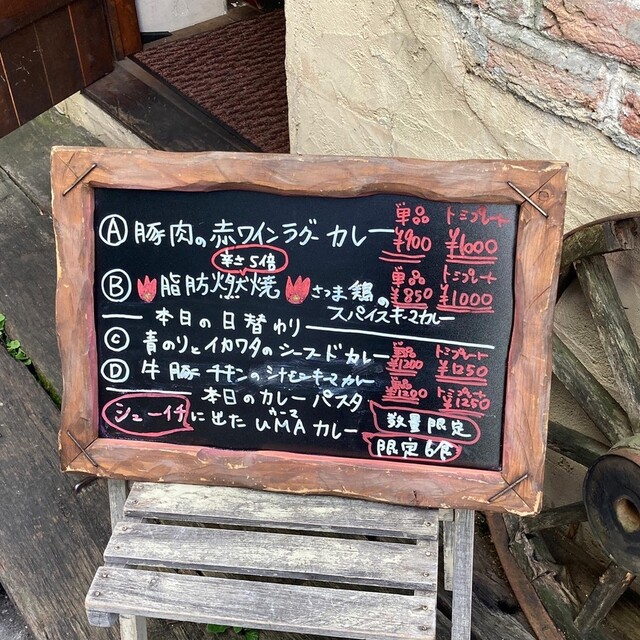 単品 トミプレート
Ⓐ 豚肉の赤ワインラグーカレー ¥900 ¥1000
辛さ5倍
単品 トミプレート
Ⓑ 脂肪燃焼 さつま鶏の ¥850 ¥1000
スパイスキーマカレー
本日の日替わり
Ⓒ 青のりとイカワタのシーフードカレー 単品 ¥1200 トミプレート ¥1250
Ⓓ 牛豚チキンのキーマカレー 単品 ¥1200 トミプレート ¥1250
本日のカレーパスタ
シューイチに出たUMAカレー 数量限定
ウーマ
限定6食